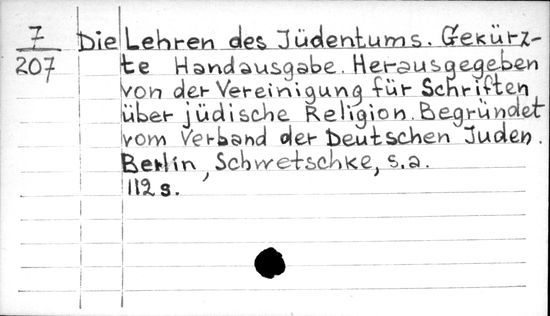 7
207
Die Lehren des Jüdentums. Gekürz-
te Handausgabe. Herausgegeben
von der Vereinigung für Schriften
über jüdische Religion. Begründet
vom Verband der Deutschen Juden.
Berlin, Schwetschke, s.a.
112 s.